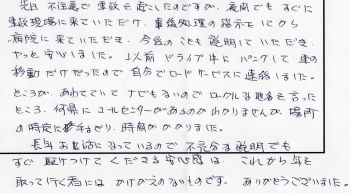 先日 不注意で事故を起こしたのですが、夜間でもすぐに
事故現場に来ていただけ、事後処理の指示をしてから
病院に来ていただき、今後のことも説明していただき、
やっと安心しました。以前ドライブ中にパンクして車の
移動だけだったので自分でロードサービスに連絡しました。
ところが、あわてていて ナビもないのでローカルな地名を言った
ところ、何県にコールセンターがあるのかわかりませんが、場所
の特定に手まどり、時間がかかりました。
長年お世話になっているので 不充分な説明でも
すぐ 駆けつけて くださる安心感は これから年を
取って行く者には かけがえのないものです。ありがとうございました。